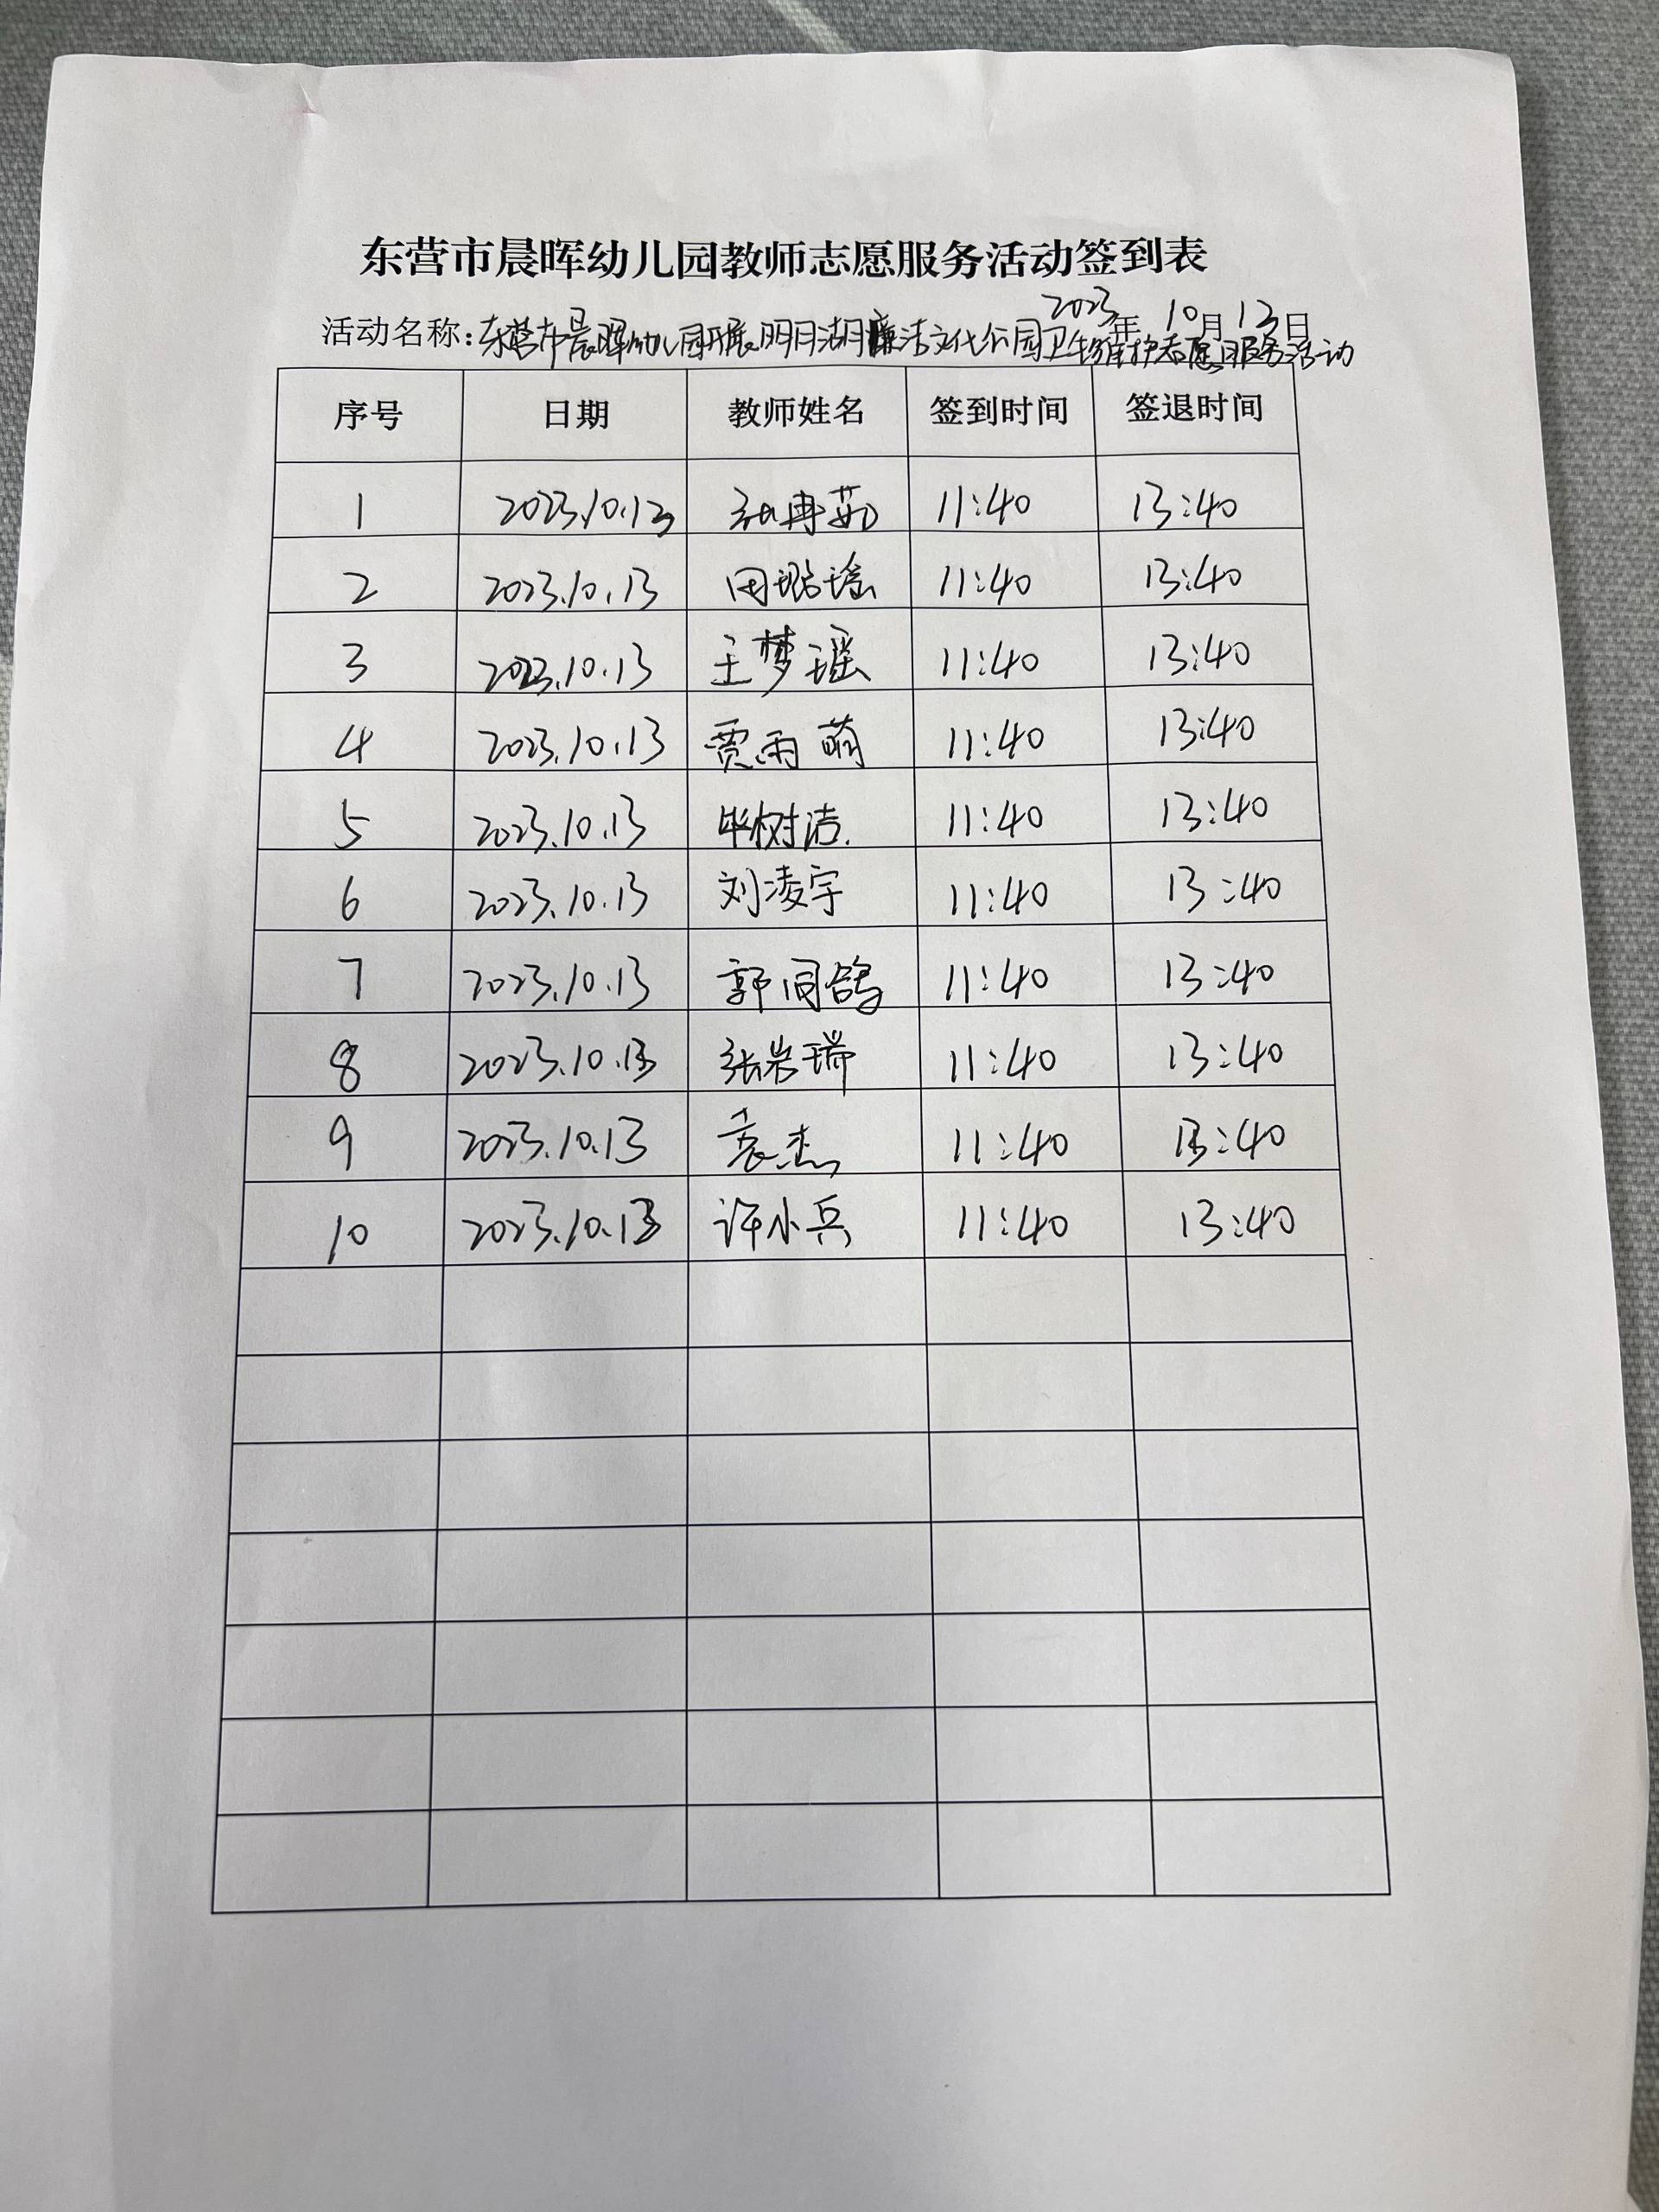 东营市晨晖幼儿园教师志愿服务活动签到表
2023年10月13日
活动名称:东营市晨晖幼儿园开展明月湖廉洁文化公园卫生维护志愿服务活动
序号 日期 教师姓名 签到时间 签退时间
1 2023.10.13 冉茹 11:40 13:40
2 2023.10.13 田瑶 11:40 13:40
3 2023.10.13 王梦瑶 11:40 13:40
4 2023.10.13 贾雨萌 11:40 13:40
5 2023.10.13 毕树洁. 11:40 13:40
6 2023.10.13 刘凌宇 11:40 13:40
7 2023.10.13 郭同鸽 11:40 13:40
8 2023.10.13 张岩瑞 11:40 13:40
9 2023.10.13 袁杰 11:40 13:40
10 2023.10.13 许小兵 11:40 13:40